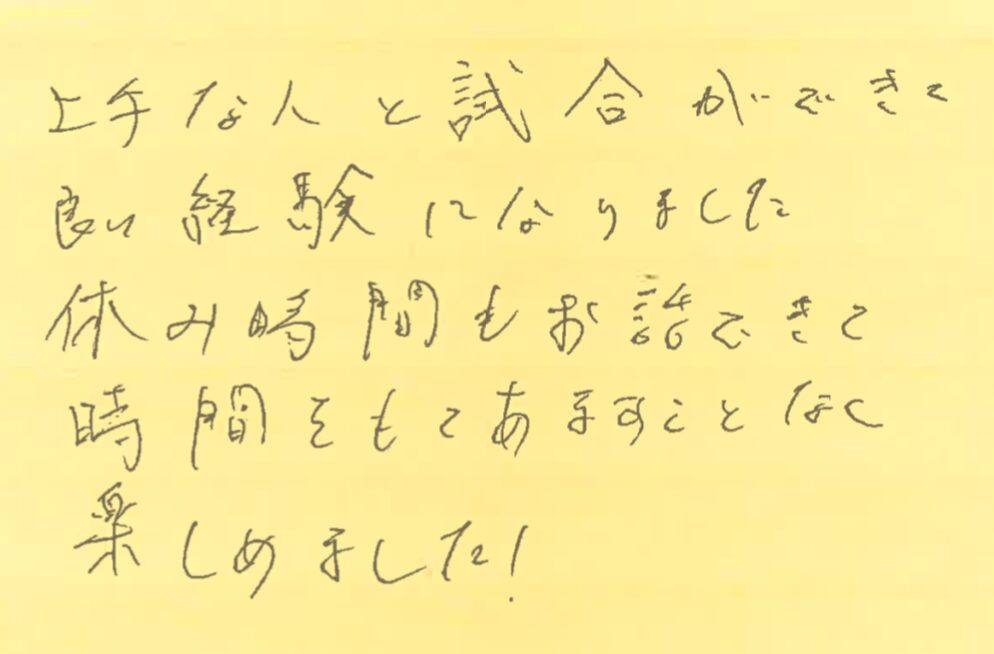 上手な人と試合ができて
良い経験になりました
休み時間もお話できて
時間をもてあますことなく
楽しめました!